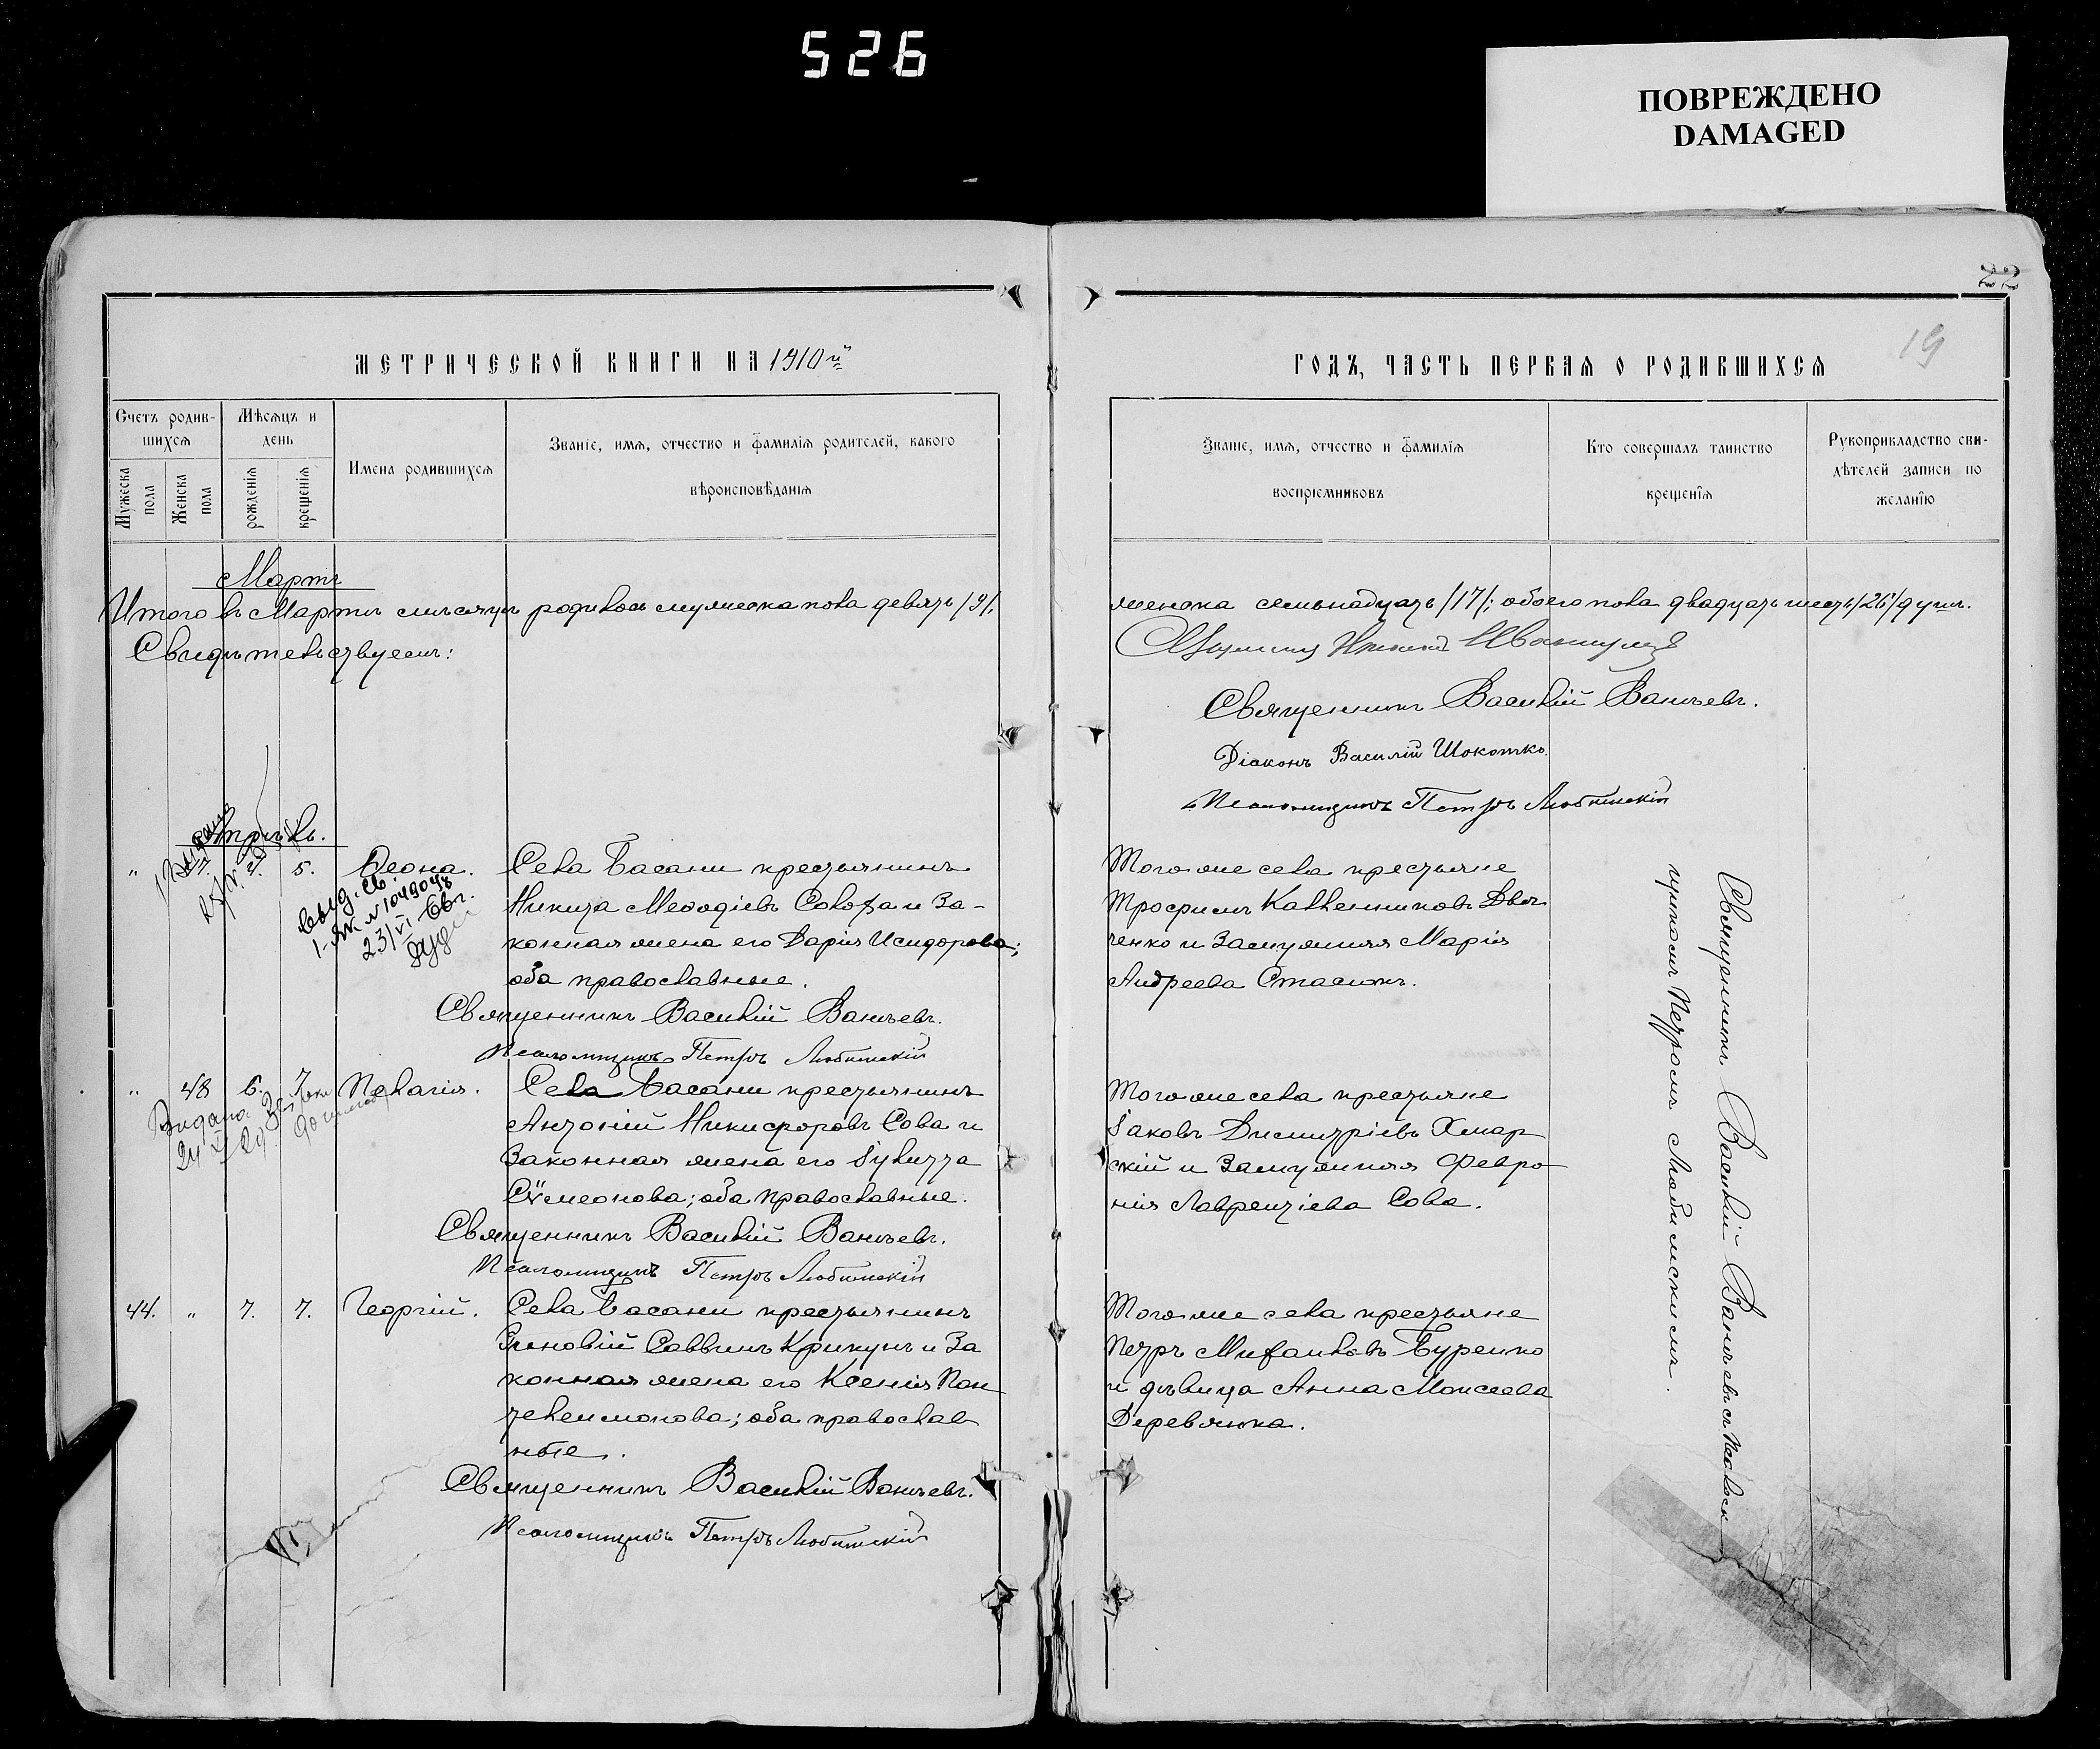 526
ПОВРЕЖДЕНО
DAMAGED
22
19
МЕТРИЧЕСКОЙ КНИГИ НА 1910й
ГОДЪ, ЧАСТЬ ПЕРВАЯ О РОДИВШИХСЯ
Счетъ родив-
шихся
Мужеска
пола
Женска
пола
Мѣсяцъ и
день
рожденія
крещенія
Имена родившихся
Званіе, имя, отчество и фамилія родителей, какого
вѣроисповѣданія
Званіе, имя, отчество и фамилія
воспріемниковъ
Кто совершалъ таинство
крещенія
Рукоприкладство сви-
дѣтелей записи по
желанію
Мартъ
Итого въ Мартѣ мѣсяцѣ родилось мужеска пола девять /9/.
женска семьнадцать /17/; обоего пола двадцать шесть /26/ душъ.
Свидѣтельствуемъ:
Священникъ Василій Ваньевъ.
Діаконъ Василій Шокотко.
Псаломщикъ Петръ Любимскій
Апрѣль.
" 4. 5. Ѳеона.
выд. св.
№ 104904
23/VI
Села Басани крестьянинъ
Никита Меѳодіевъ Солоха и за-
конная жена его Дарія Исидорова;
оба православные.
Священникъ Василій Ваньевъ.
Псаломщикъ Петръ Любимскій
Того же села крестьяне
Трофимъ Каллениковъ Двя
ченко и замужняя Марія
Андреева Стасюкъ.
" 48 6. 7. Пелагія.
Видана
24
Села Басани крестьянинъ
Антоній Никифоровъ Сова и
законная жена его Іулитта
Сѵмеонова; оба православные.
Священникъ Василій Ваньевъ.
Псаломщикъ Петръ Любимскій
Того же села крестьяне
Іаковъ Димитріевъ Хмар
скій и замужняя Февро
нія Лаврентіева Сова.
44. " 7. 7. Георгій.
Села Басани крестьянинъ
Зиновій Саввинъ Крикунъ и за
конная жена его Ксенія Пан
телеимонова; оба православ
ные.
Священникъ Василій Ваньевъ.
Псаломщикъ Петръ Любимскій
Того же села крестьяне
Петръ Михаиловъ Буренко
и дѣвица Анна Моисеева
Деревянка.
Священникъ Василій Ваньевъ съ Псалом
щикомъ Петромъ Любимскимъ.